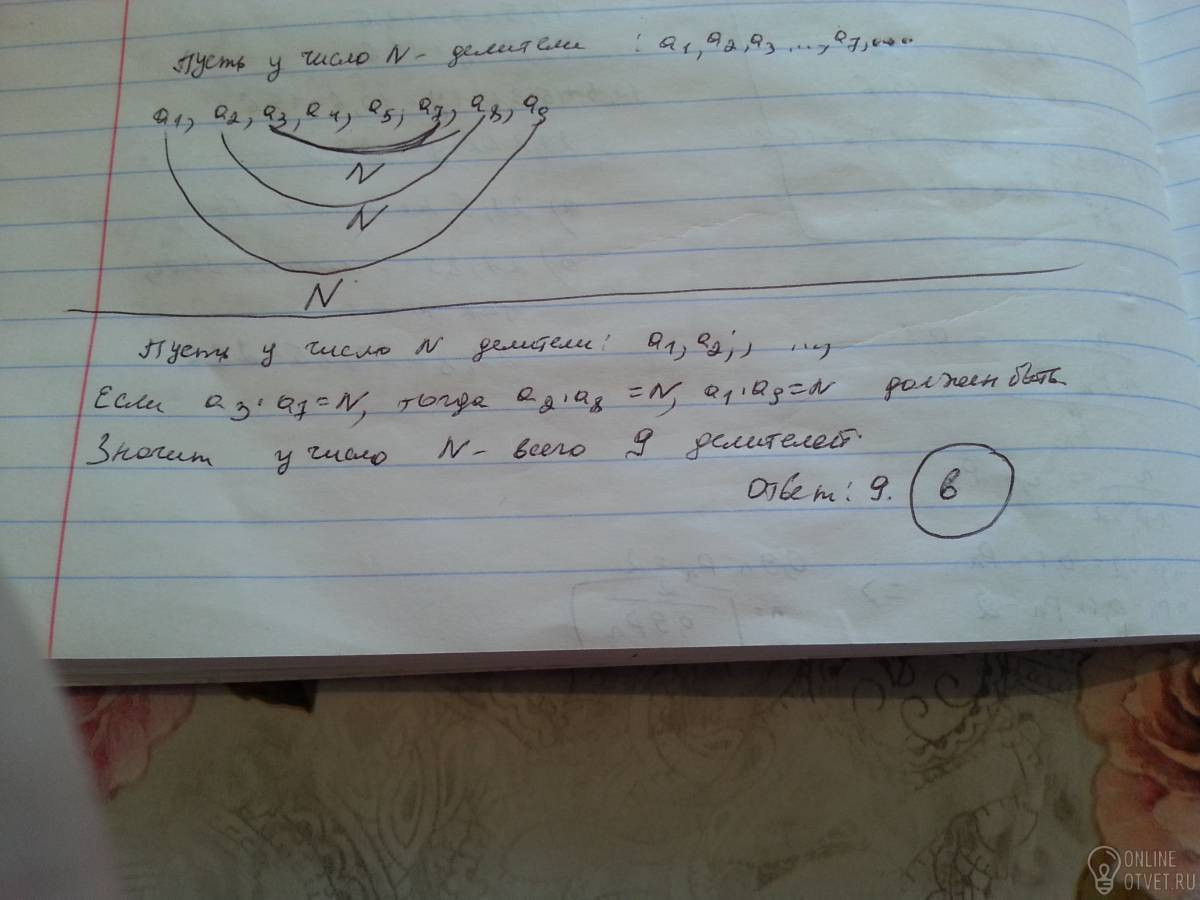 Пусть у число N - делители : a₁, a₂, a₃ ..., a₇, ...
a₁, a₂, a₃, a₄, a₅, a₇, a₈, a₉
N
N
N
Пусть у число N делители: a₁, a₂, , ...,
Если a₃ · a₇ = N, тогда a₂ · a₈ = N, a₁ · a₉ = N должен быть
Значит у число N - всего 9 делителей.
Ответ: 9. в
ONLINE
OTVET.RU